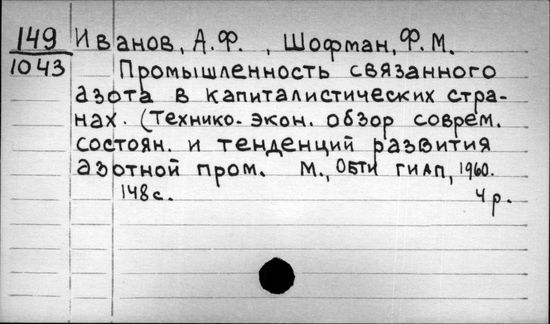 149 Иванов, А.Ф. , Шофман, Ф.М.
1043 Промышленность связанного
азота в капиталистических стра-
нах. (Технико-экон. обзор соврем.
состоян. и тенденций развития
азотной пром. М., ОБТИ ГИАП, 1960.
148с. 4р.